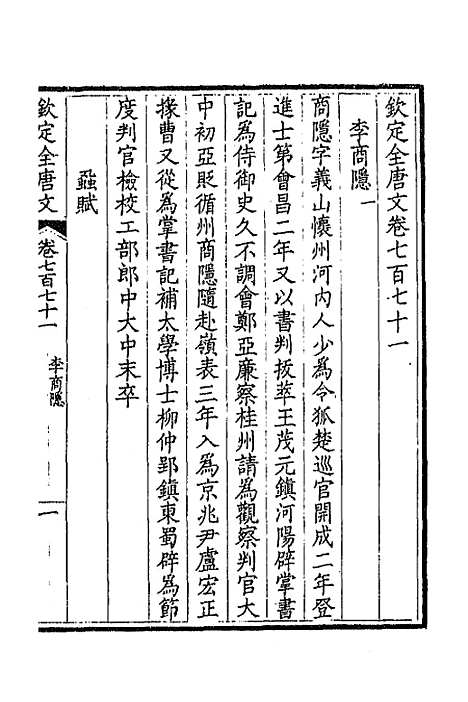 欽定全唐文卷七百七十一
李商隱一
商隱字義山懷州河內人少為令狐楚巡官開成二年登
進士第會昌二年又以書判拔萃王茂元鎮河陽辟掌書
記為侍御史久不調會鄭亞廉察桂州請為觀察判官大
中初亞貶循州商隱隨赴嶺表三年入為京兆尹盧宏正
掾曹又從為掌書記補太學博士柳仲郢鎮東蜀辟為節
度判官檢校工部郎中大中末卒
蝨賦
欽定全唐文
卷七百七十一
李商隱
一